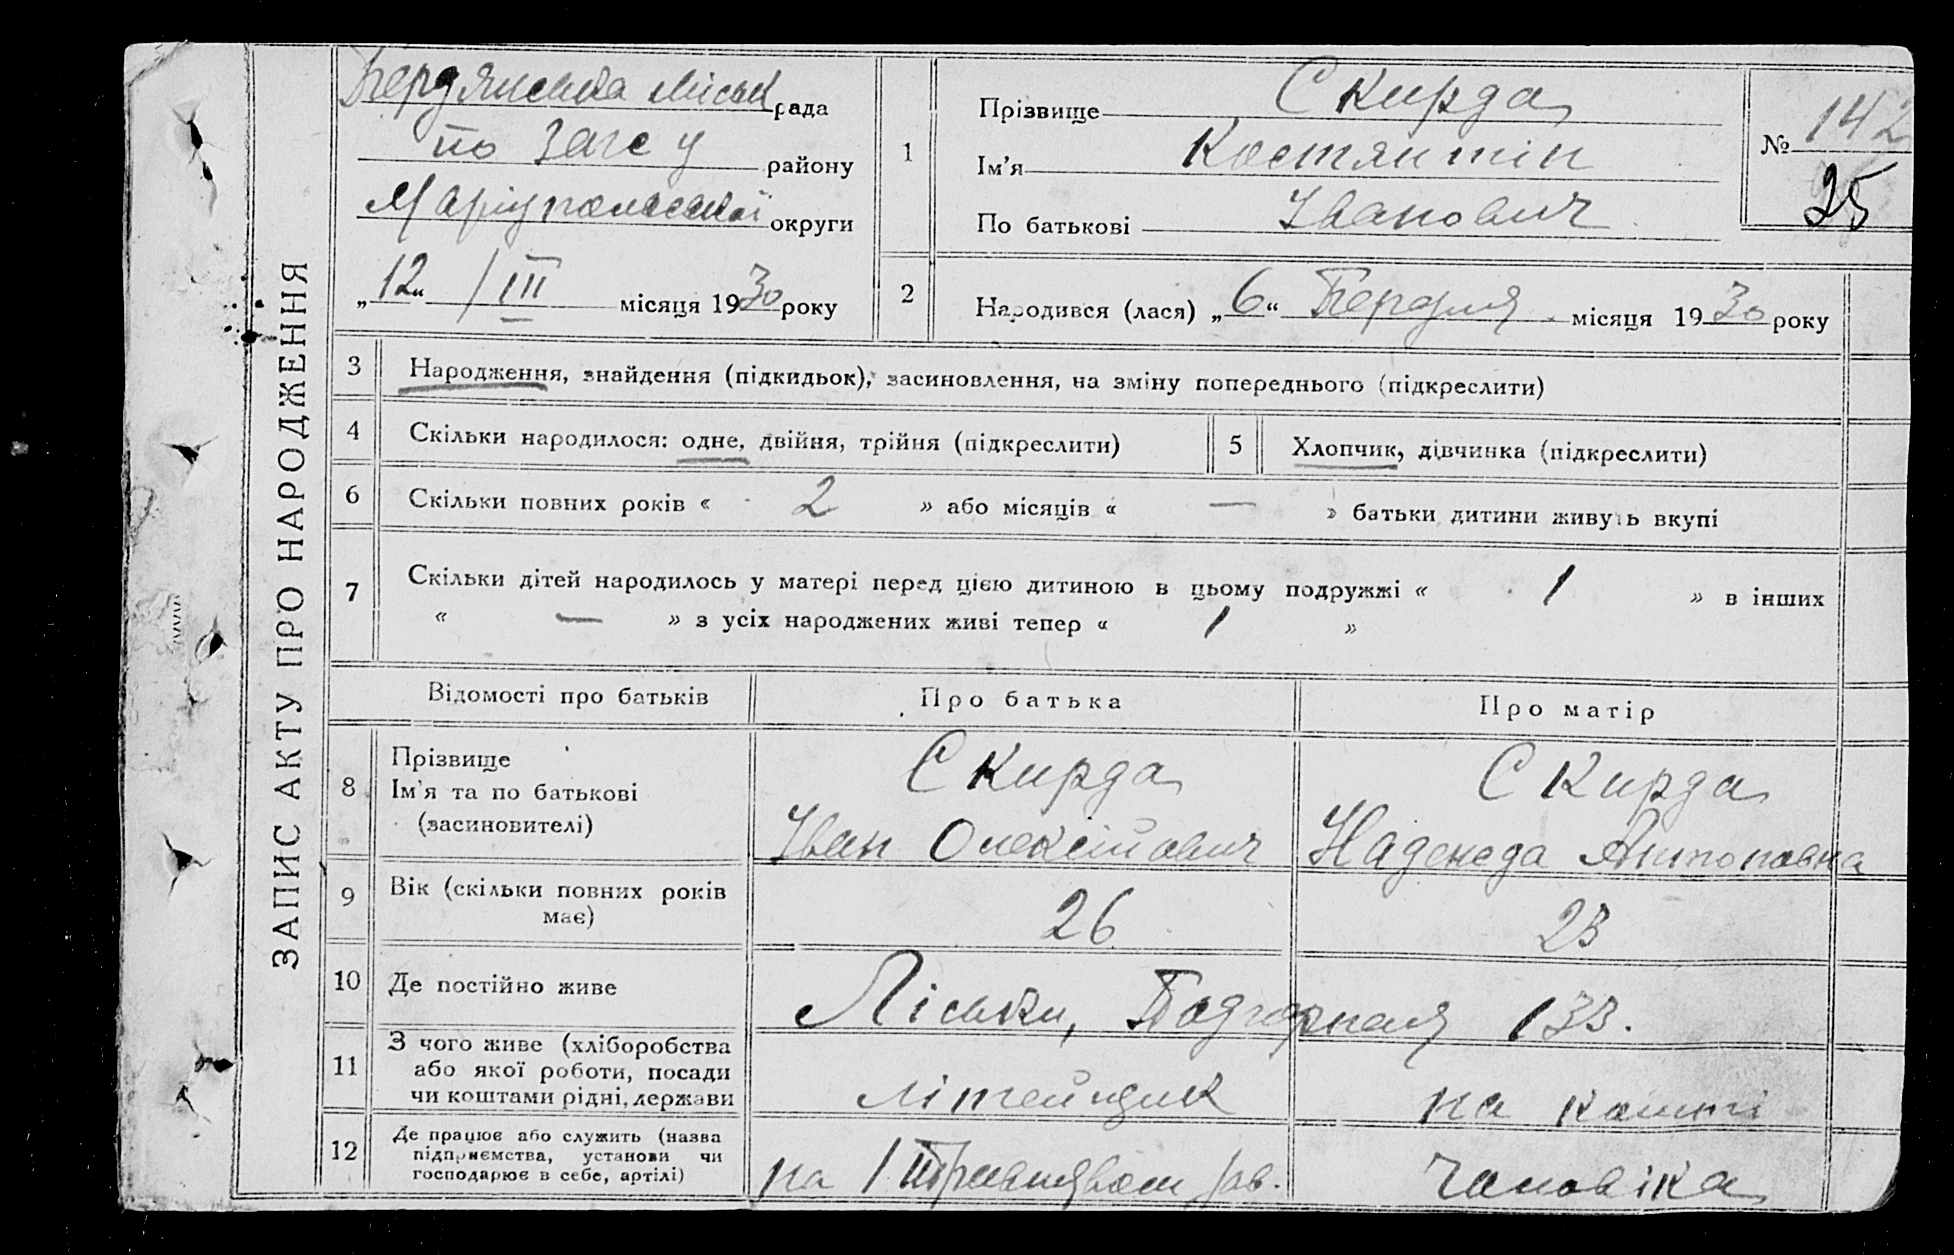 ЗАПИС АКТУ ПРО НАРОДЖЕННЯ
Бердянська міськ рада
по Загс у району
Маріупольської округи
„12“ / III місяця 1930 року
1
Прізвище Скирда
Ім'я Костянтін
По батькові Іванович
№ 142
25
2
Народився (лася) „6“ Березня місяця 1930 року
3 Народження, знайдення (підкидьок), засиновлення, на зміну попереднього (підкреслити)
4 Скільки народилося: одне, двійня, трійня (підкреслити)
5 Хлопчик, дівчинка (підкреслити)
6 Скільки повних років « 2 » або місяців « — » батьки дитини живуть вкупі
7 Скільки дітей народилось у матері перед цією дитиною в цьому подружжі « 1 » в інших
« — » з усіх народжених живі тепер « 1 »
Відомості про батьків Про батька Про матір
8 Прізвище
Ім'я та по батькові
(засиновителі)
Скирда
Іван Олексійович
Скирда
Надежда Антоновна
9 Вік (скільки повних років
має)
26
23
10 Де постійно живе
Ліськи, Подгорная 133.
11 З чого живе (хліборобства
або якої роботи, посади
чи коштами рідні, держави
літейщик
на кошти
12 Де працює або служить (назва
підприємства, установи чи
господарює в себе, артілі)
на 1
чоловіка